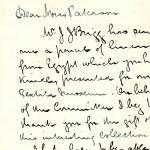 Dear Miss Paterson
Mr J J Brigg has sent
me a parcel of linen
from Egypt which you have
kindly presented for our
Textile Museum. On behalf
of the Committee I beg to
thank you for the gift of
this interesting collection
I to be able